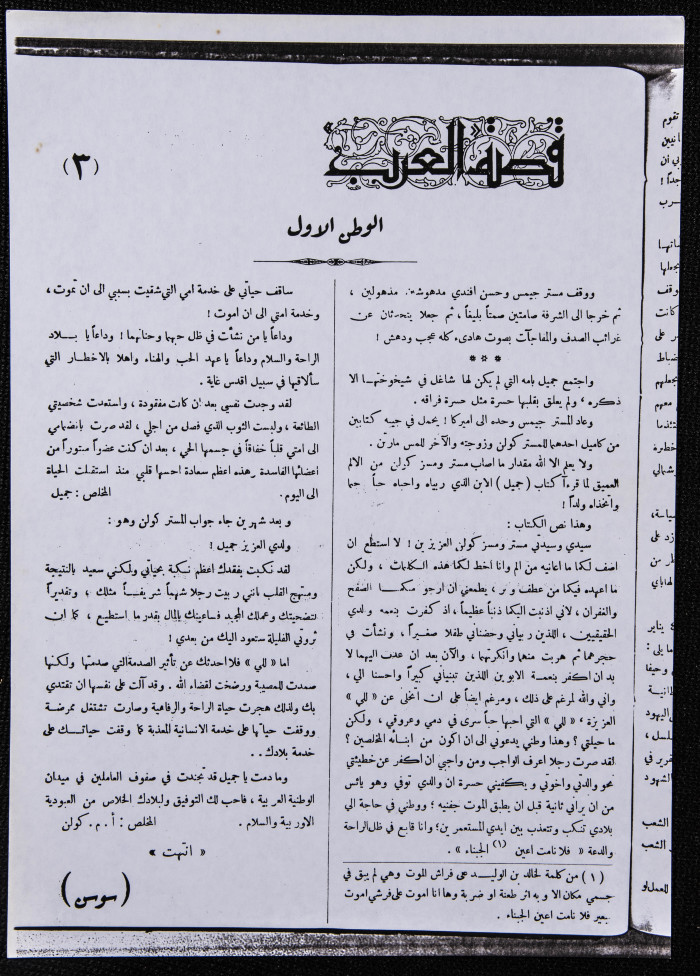 قصة العرب
(٣)
الوطن الاول
ووقف مستر جيمس وحسن افندي مدهوشين مذهولين ،
ثم خرجا الى الشرفة صامتين صمتاً بليغاً ، ثم جعلا يتحدثان عن
غرائب الصدف والمفاجآت بصوت هادىء كله عجب ودهش !
* * *
واجتمع جميل بامه التي لم يكن لها شاغل في شيخوختها الا
ذكره ، ولم يعلق بقلبها حسرة مثل حسرة فراقه .
وعاد المستر جيمس وحده الى اميركا ! يحمل في جيبه كتابين
من كاميل احدهما للمستر كولن وزوجته والآخر للمس مارتن .
ولا يعلم الا الله مقدار ما اصاب مستر ومسز كولن من الالم
العميق لما قرءآ كتاب ( جميل ) الابن الذي ربياه واحباه حباً جما
واتخذاه ولداً !
وهذا نص الكتاب :
سيدي وسيدتي مستر ومسز كولن العزيزين ! لا استطيع ان
اصف لكما ما اعانيه من الم وانا اخط لكما هذه الكلمات ، ولكن
ما اعهده فيكما من عطف وبر ، يطمعني ان ارجو منكما الصفح
والغفران ، لاني اذنبت اليكما ذنباً عظيماً ، اذ كفرت بنعمه والدي
الحقيقيين ، اللذين ربياني وحضناني طفلا صغيراً ، ونشأت في
حجرهما ثم هربت منهما وانكرتهما ، والآن بعد ان عدت اليهما لا
بد ان اكفر بنعمة الابوين اللذين تبنياني كبيراً واحسنا الي ،
واني والله لمرغم على ذلك ، ومرغم ايضاً على ان اتخلى عن « للي »
العزيزة ، « للي » التي احبها حباً سرى في دمي وعروقي ، ولكن
ما حيلتي ؟ وهذا وطني يدعوني الى ان اكون من ابنائه المخلصين ؟
لقد صرت رجلا اعرف الواجب ومن واجبي ان اكفر عن خطيئتي
نحو والدتي واخوتي ويكفيني حسرة ان والدي توفي وهو يائس
من ان يراني ثانية قبل ان يطبق الموت جفنيه ؛ ووطني في حاجة الي
بلادي تنكب وتتعذب بين ايدي المستعمرين ؛ وانا قابع في ظل الراحة
والدعة « فلا نامت اعين (١) الجبناء » .
(١) من كلمة لخالد بن الوليد على فراش الموت وهي لم يبق في
جسمي مكان الا وبه اثر طعنة او ضربة وها انا اموت على فرشي اموت
بعير فلا نامت اعين الجبناء .
ساقف حياتي على خدمة امي التي شقيت بسببي الى ان تموت ،
وخدمة امتي الى ان اموت !
وداعاً يا من نشأت في ظل حبهما وحنانهما ! وداعاً يا بلاد
الراحة والسلام وداعاً يا عهد الحب والهناء واهلا بالاخطار التي
سألاقيها في سبيل اقدس غاية .
لقد وجدت نفسي بعد ان كانت مفقودة ، واستعدت شخصيتي
الطائعة ، ولبست الثوب الذي فصل من اجلي ، لقد صرت بانضمامي
الى امتي قلباً خفاقاً في جسمها الحي ، بعد ان كنت عضواً مبتوراً من
أعضائها الفاسدة وهذه اعظم سعادة احسها قلبي منذ استقبلت الحياة
الى اليوم . المخلص : جميل
و بعد شهرين جاء جواب المستر كولن وهو :
ولدي العزيز جميل !
لقد نكبت بفقدك اعظم نكبة بحياتي ولكني سعيد بالنتيجة
ومبتهج القلب لانني ربيت رجلا شهماً شريفاً مثلك ؛ وتقديراً
لتضحيتك وعملك المجيد فساعينك بالمال بقدر ما استطيع ، كما ان
ثروتي القليلة ستعود اليك من بعدي !
اما « للي » فلا احدثك عن تأثير الصدمة التي صدمتها ولكنها
صمدت للمصيبة ورضخت لقضاء الله . وقد آلت على نفسها ان تقتدي
بك ولذلك هجرت حياة الراحة والرفاهية وصارت تشتغل ممرضة
ووقفت حياتها على خدمة الانسانية المعذبة كما وقفت حياتك على
خدمة بلادك . .
وما دمت يا جميل قد تجندت في صفوف العاملين في ميدان
الوطنية العربية ، فاحب لك التوفيق ولبلادك الخلاص من العبودية
الاوربية والسلام . المخلص : أ . م . كولن
« انتهت »
(سوسن)
تقوم
جداً !
يجعلها
وقف
كانت
ضباط
يجعلهم
معهم
خطرة
شمالي
سياسة ،
يناير
اليهود
الشهود
الشعب
الشعب
للعمل او